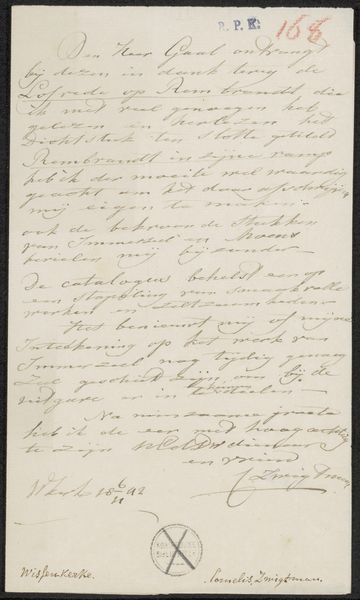 R. P. K.
168
Den Heer Gaal ontvangt
bij dezen in dank terug de
Lofrede op Rembrandt, die
ik met veel genoegen heb
gelezen en herlezen het
Dichtstuk ten slotte getiteld
Rembrandt in zijne
heb ik der moeite wel waardig
geacht om het door
mij eigen te maken.
ook de bekroonde stukken
van Immerzeel en Moens
bevielen mij bijzonder
De catalogus behelst een op
een stapeling van smaakvolle
werken en zeldzaamheden
Het benieuwt mij of mijne
Inteekening op het werk van
Immerzeel nog tijdig genoeg
zal geschied zijn om bij de
uitgave er in te deelen
Na minzaame groete
heb ik de eer met hoogachting
te zijn dienaar
en vriend
C Zwigtman
Wkerk 18 6/11 42
Wissenkerke.
Cornelis Zwigtman.